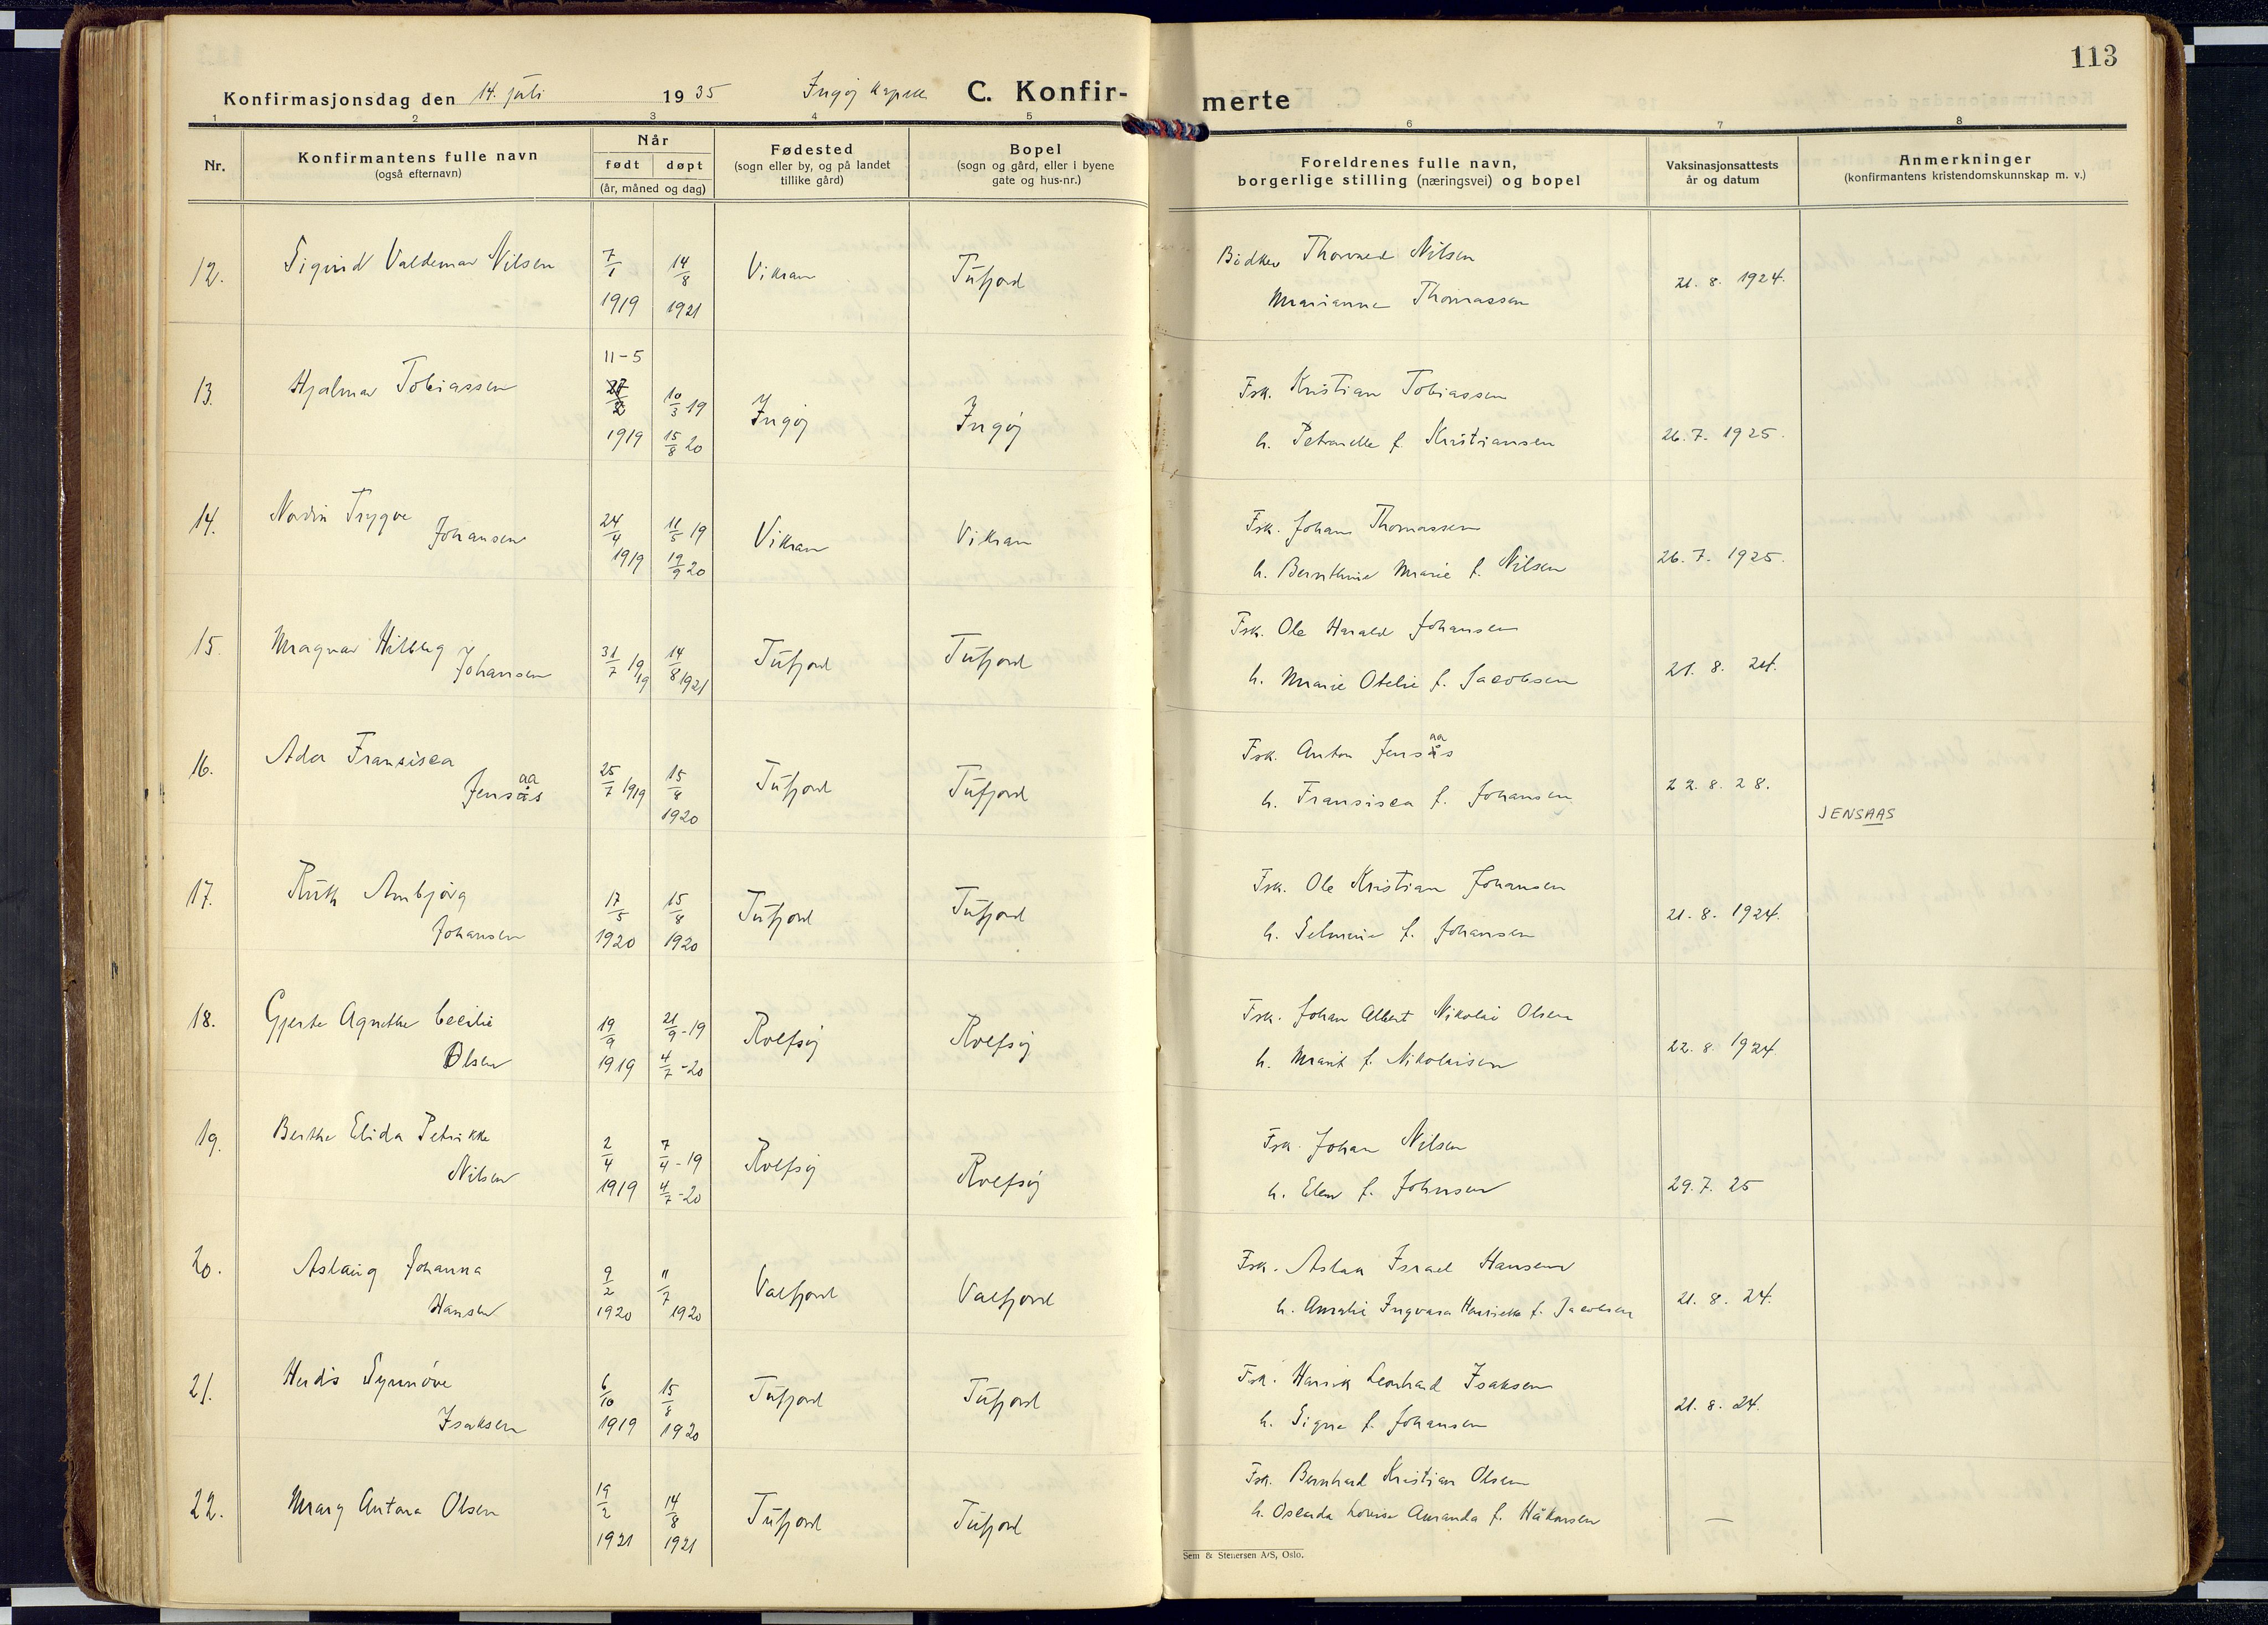 113
Konfirmasjonsdag den 14. juli 1935 Ingøj kapell C. Konfir-merte
1 2 3 4 5 6 7 8
Nr.
Konfirmantens fulle navn
(også efternavn)
Når
født døpt
(år, måned og dag)
Fødested
(sogn eller by, og på landet
tillike gård)
Bopel
(sogn og gård, eller i byene
gate og hus-nr.)
Foreldrenes fulle navn,
borgerlige stilling (næringsvei) og bopel
Vaksinasjonsattests
år og datum
Anmerkninger
(konfirmantens kristendomskunnskap m. v.)
12. Sigurd Valdemar Nilsen 7/1 1919 14/8 1921 Vikran Tufjord Bødker Thorvald Nilsen
Marianne Thomassen 21. 8. 1924.
13. Hjalmar Tobiassen 11-5 1919 10/3 19 15/8 20 Ingøj Ingøj Fsk. Kristian Tobiassen
h. Petronelle f. Kristiansen 26. 7. 1925.
14. Nordin Trygve
Johansen 24/4 1919 11/5 19 19/9 20 Vikran Vikran Fsk. Johan Thomassen
h. Bernthine Marie f. Nilsen 26. 7. 1925.
15. Magnar Hilberg
Johansen 31/7 1919 14/8 1921 Tufjord Tufjord Fsk. Ole Harald Johansen
h. Marie Otelie f. Jacobsen 21. 8. 24.
16. Ada Fransisca
aa
Jensås 25/7 1919 15/8 1920 Tufjord Tufjord Fsk. Anton Jensås
aa
h. Fransisca f. Johansen 22. 8. 28.
JENSAAS
17. Ruth Annbjørg
Johansen 17/5 1920 15/8 1920 Tufjord Tufjord Fsk. Ole Kristian Johansen
h. Selmine f. Johansen 21. 8. 1924.
18. Gjerte Agnethe Cecilie
Olsen 19/9 1919 21/9-19 4/7-20 Rolfsøj Rolfsøj Fsk. Johan Albert Nikolai Olsen
h. Marit f. Nikolaisen 22. 8. 1924
19. Berthe Elida Petrikke
Nilsen 2/4 1919 7/4-19 4/7-20 Rolfsøj Rolfsøj Fsk. Johan Nilsen
h. Elen f. Johnsen 29. 7. 25
20. Aslaug Johanna
Hansen 9/2 1920 11/7 1920 Valfjord Valfjord Fsk. Aslak Israel Hansen
h. Amalie Ingvara Henrikke f. Jacobsen 21. 8. 24.
21. Herdis Synnøve
Isaksen 6/10 1919 15/8 1920 Tufjord Tufjord Fsk. Henrik Leonhard Isaksen
h. Signe f. Johansen 21. 8. 24.
22. Mary Antora Olsen 19/2 1921 14/8 1921 Tufjord Tufjord Fsk. Bernhard Kristian Olsen
h. Oscarda Lovise Amanda f. Håkonsen —
Sem & Stenersen A/S, Oslo.